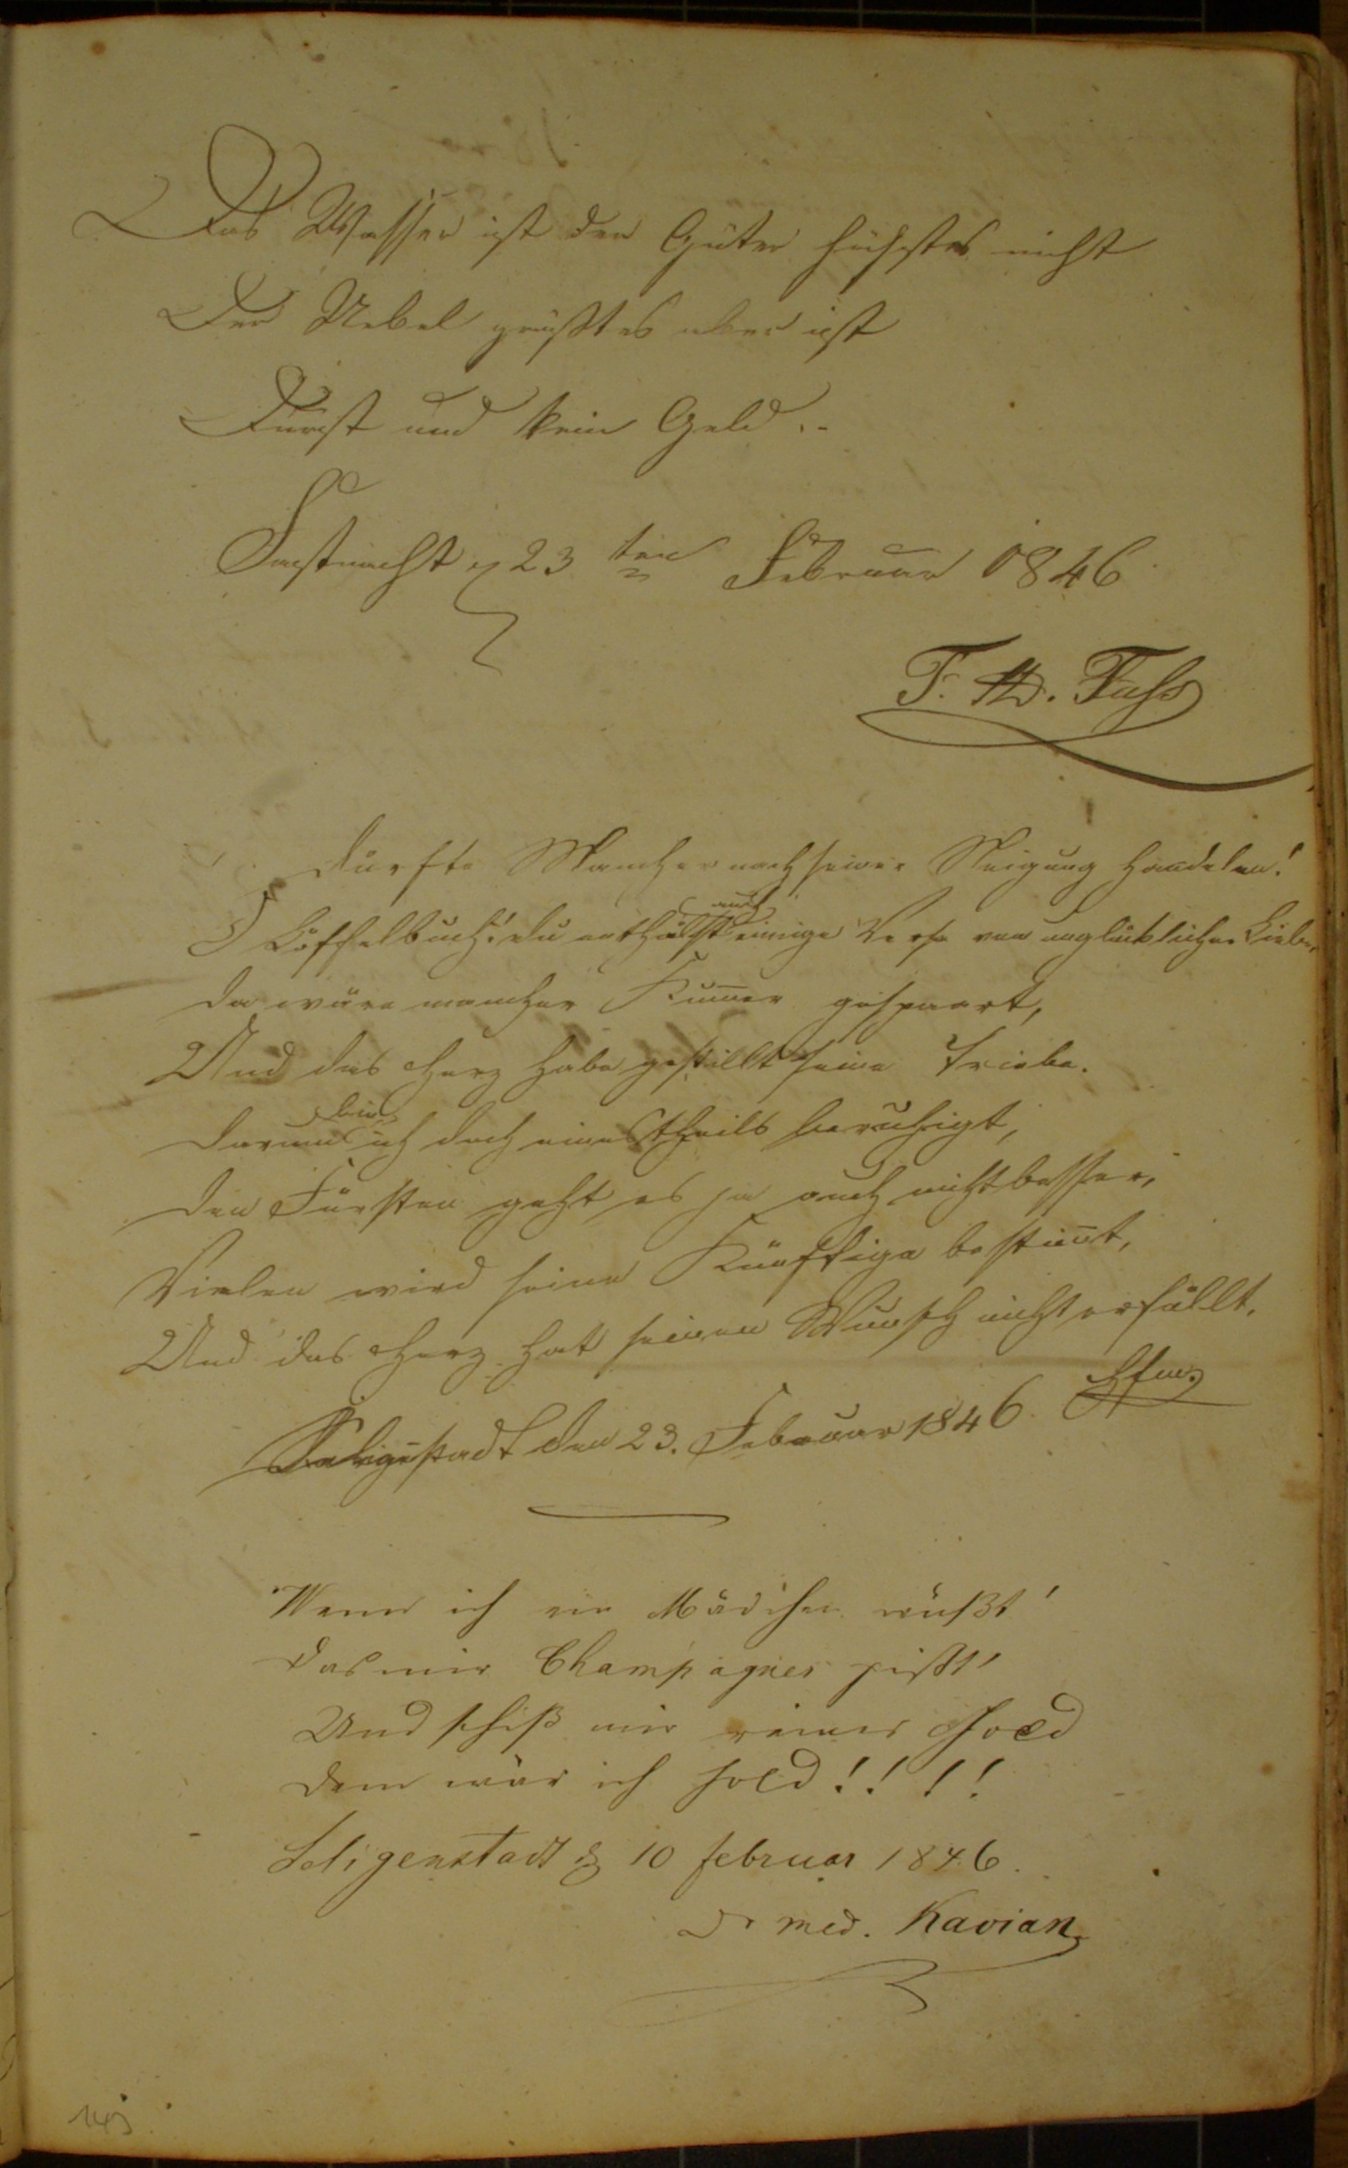 Das Wasser ist der Güter höchstes nicht
Der Uebel größtes aber ist
Durst und kein Geld..
Fastnacht d 23 ten Februar 1846
F. A. D. Fuhs
Dürfte Mancher nach seiner Neigung handelen!
auch
O Löffelbuch! du enthälst einige Verse von unglücklicher Liebe,
da wäre mancher Kum̄er gespaart,
Und das Herz habe gestillt seine Triebe.
bin
Darum ich doch einestheils beruhigt,
den Fürsten geht es ja auch nicht besser,
Vielen wird seine Künftige bestim̄t,
Und das Herz hat seinen Wunsch nicht erfüllt.
Seligenstadt den 23. Februar 1846
Wenn ich ein Mädchen wüßt'
das mir Champagner pißt'
Und schiß mir reines Gold
dem wär ich hold!!!!
Seligenstadt d 10 februar 1846.
Dr med. Kavian
143